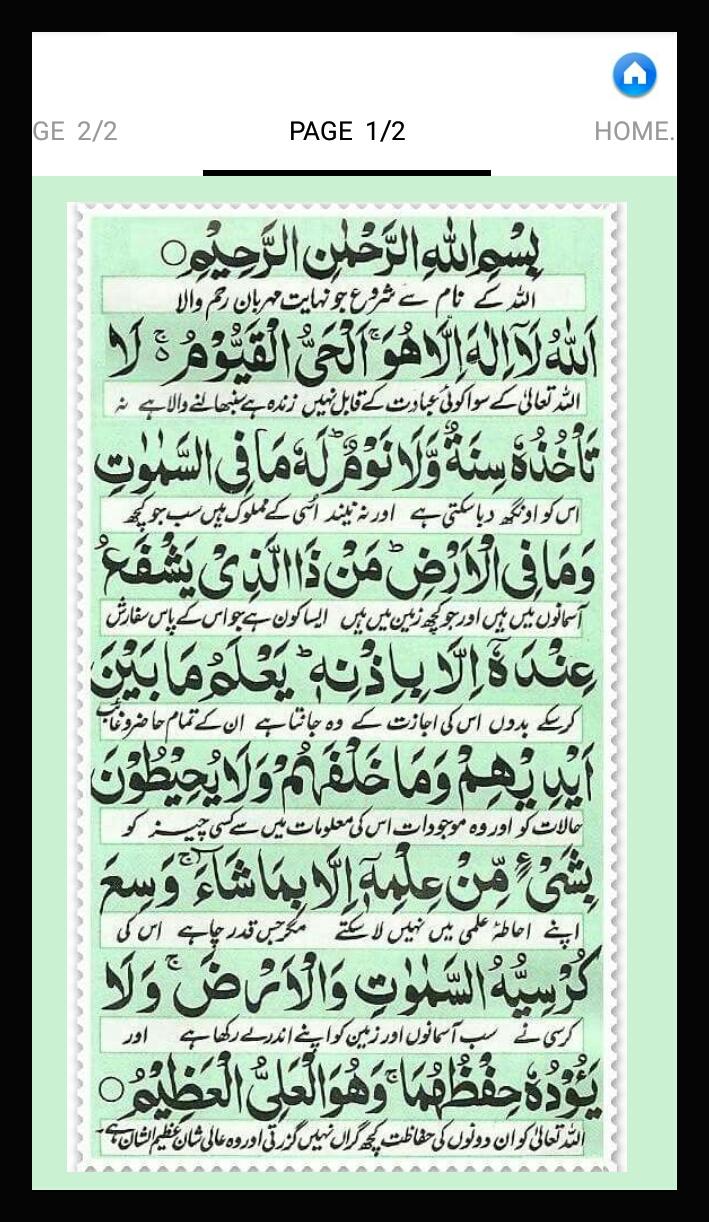 GE 2/2 PAGE 1/2 HOME.
بِسْمِ اللهِ الرَّحْمٰنِ الرَّحِیْمِ ○
اللہ کے نام سے شروع جو نہایت مہربان رحم والا
اَللهُ لَاۤ اِلٰهَ اِلَّا هُوَ ۚ اَلْحَیُّ الْقَیُّوْمُ ۬ ۚ لَا
اللہ تعالیٰ کے سوا کوئی عبادت کے قابل نہیں زندہ ہے سنبھالنے والا ہے نہ
تَاْخُذُهٗ سِنَةٌ وَّلَا نَوْمٌ ؕ لَهٗ مَا فِی السَّمٰوٰتِ
اس کو اونگھ دبا سکتی ہے اور نہ نیند اُسی کے مملوک ہیں سب جو کچھ
وَمَا فِی الْاَرْضِ ؕ مَنْ ذَا الَّذِیْ یَشْفَعُ
آسمانوں میں ہیں اور جو کچھ زمین میں ہیں ایسا کون ہے جو اس کے پاس سفارش
عِنْدَهٗۤ اِلَّا بِاِذْنِهٖ ؕ یَعْلَمُ مَا بَیْنَ
کر سکے بدوں اس کی اجازت کے وہ جانتا ہے ان کے تمام حاضر و غائب
اَیْدِیْهِمْ وَمَا خَلْفَهُمْ ۚ وَلَا یُحِیْطُوْنَ
حالات کو اور وہ موجودات اس کی معلومات میں سے کسی چیز کو
بِشَیْءٍ مِّنْ عِلْمِهٖۤ اِلَّا بِمَا شَآءَ ۚ وَسِعَ
اپنے احاطۂ علمی میں نہیں لا سکتے مگر جس قدر چاہے اس کی
كُرْسِیُّهُ السَّمٰوٰتِ وَالْاَرْضَ ۚ وَلَا
کرسی نے سب آسمانوں اور زمین کو اپنے اندر لے رکھا ہے اور
یَـُٔوْدُهٗ حِفْظُهُمَا ۚ وَهُوَ الْعَلِیُّ الْعَظِیْمُ ○
اللہ تعالیٰ کو ان دونوں کی حفاظت کچھ گراں نہیں گزرتی اور وہ عالی شان عظیم الشان ہے۔